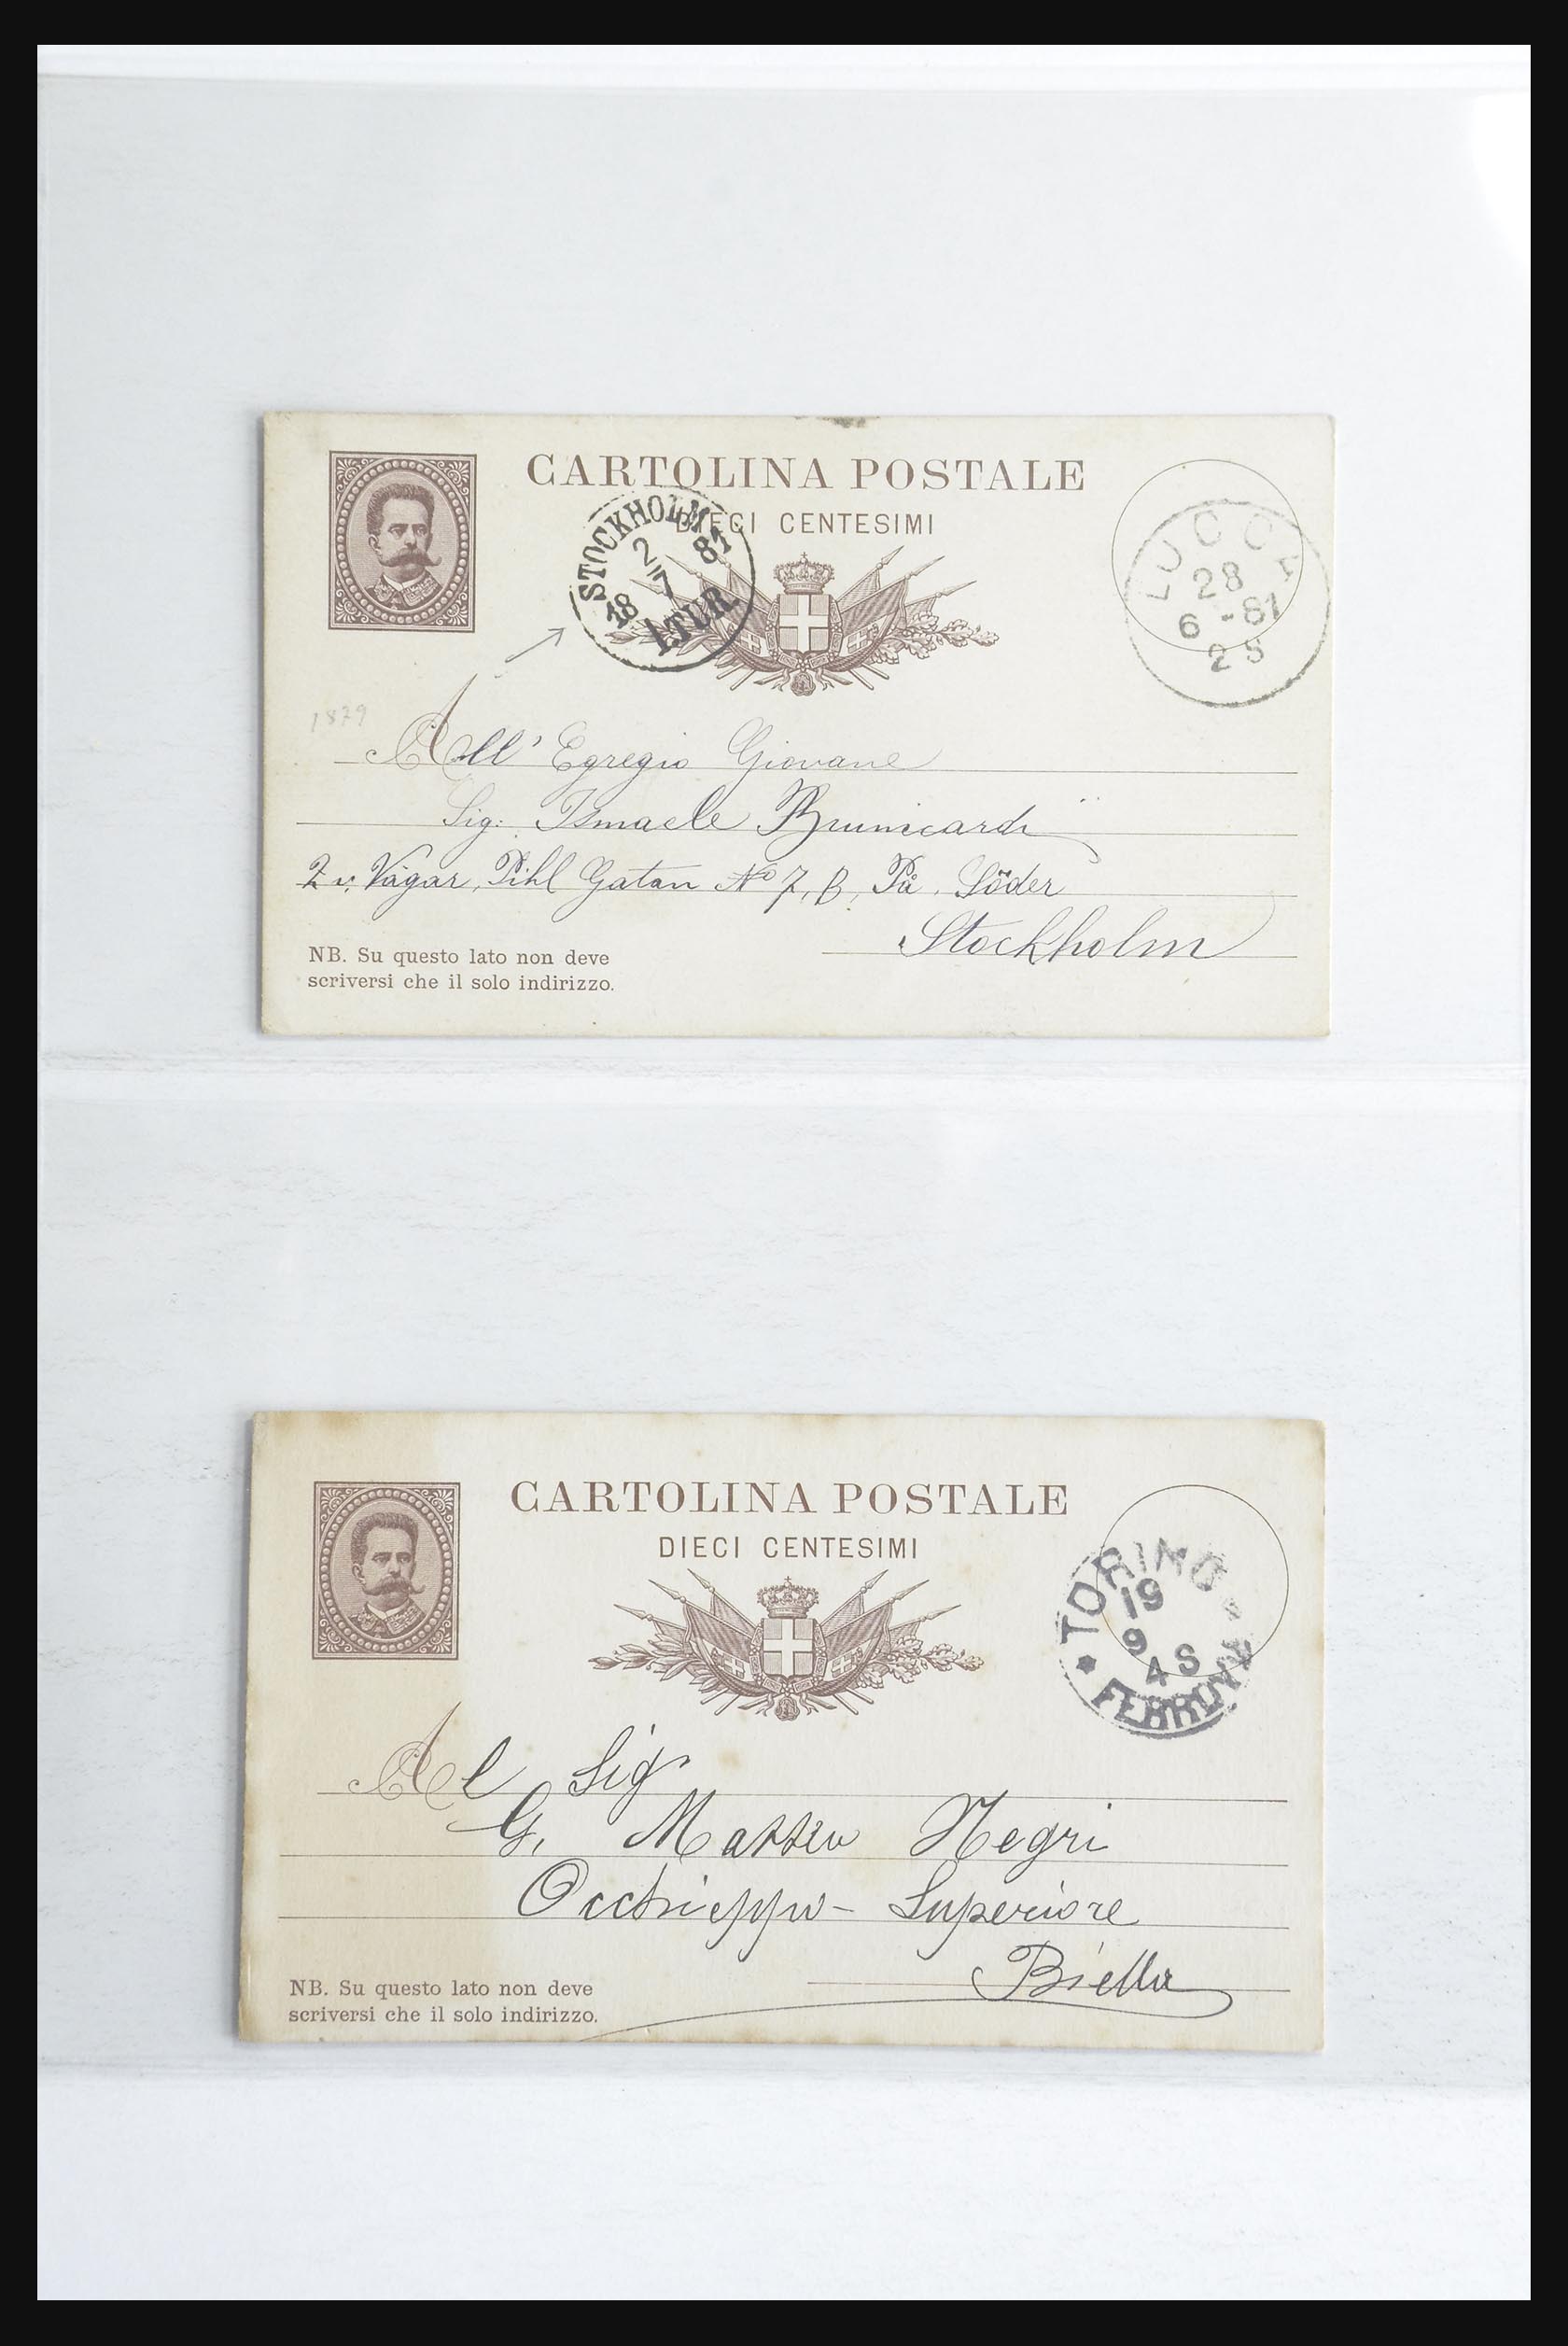 CARTOLINA POSTALE
DIECI CENTESIMI
STOCKHOLM
2 81
7
18
1.TUR.
LUCCA
28
6 - 81
2 S
1879
All' Egregio Giovane
Sig: Ismaele Brunicardi
2 v. Vägar, Pihl Gatan No 7, B, På, Söder
Stockholm
NB. Su questo lato non deve
scriversi che il solo indirizzo.
CARTOLINA POSTALE
DIECI CENTESIMI
TORINO
19
9
4 S
FERROVIA
Al Sigr
G. Matteo Negri
Occhieppo - Superiore
Biella
NB. Su questo lato non deve
scriversi che il solo indirizzo.